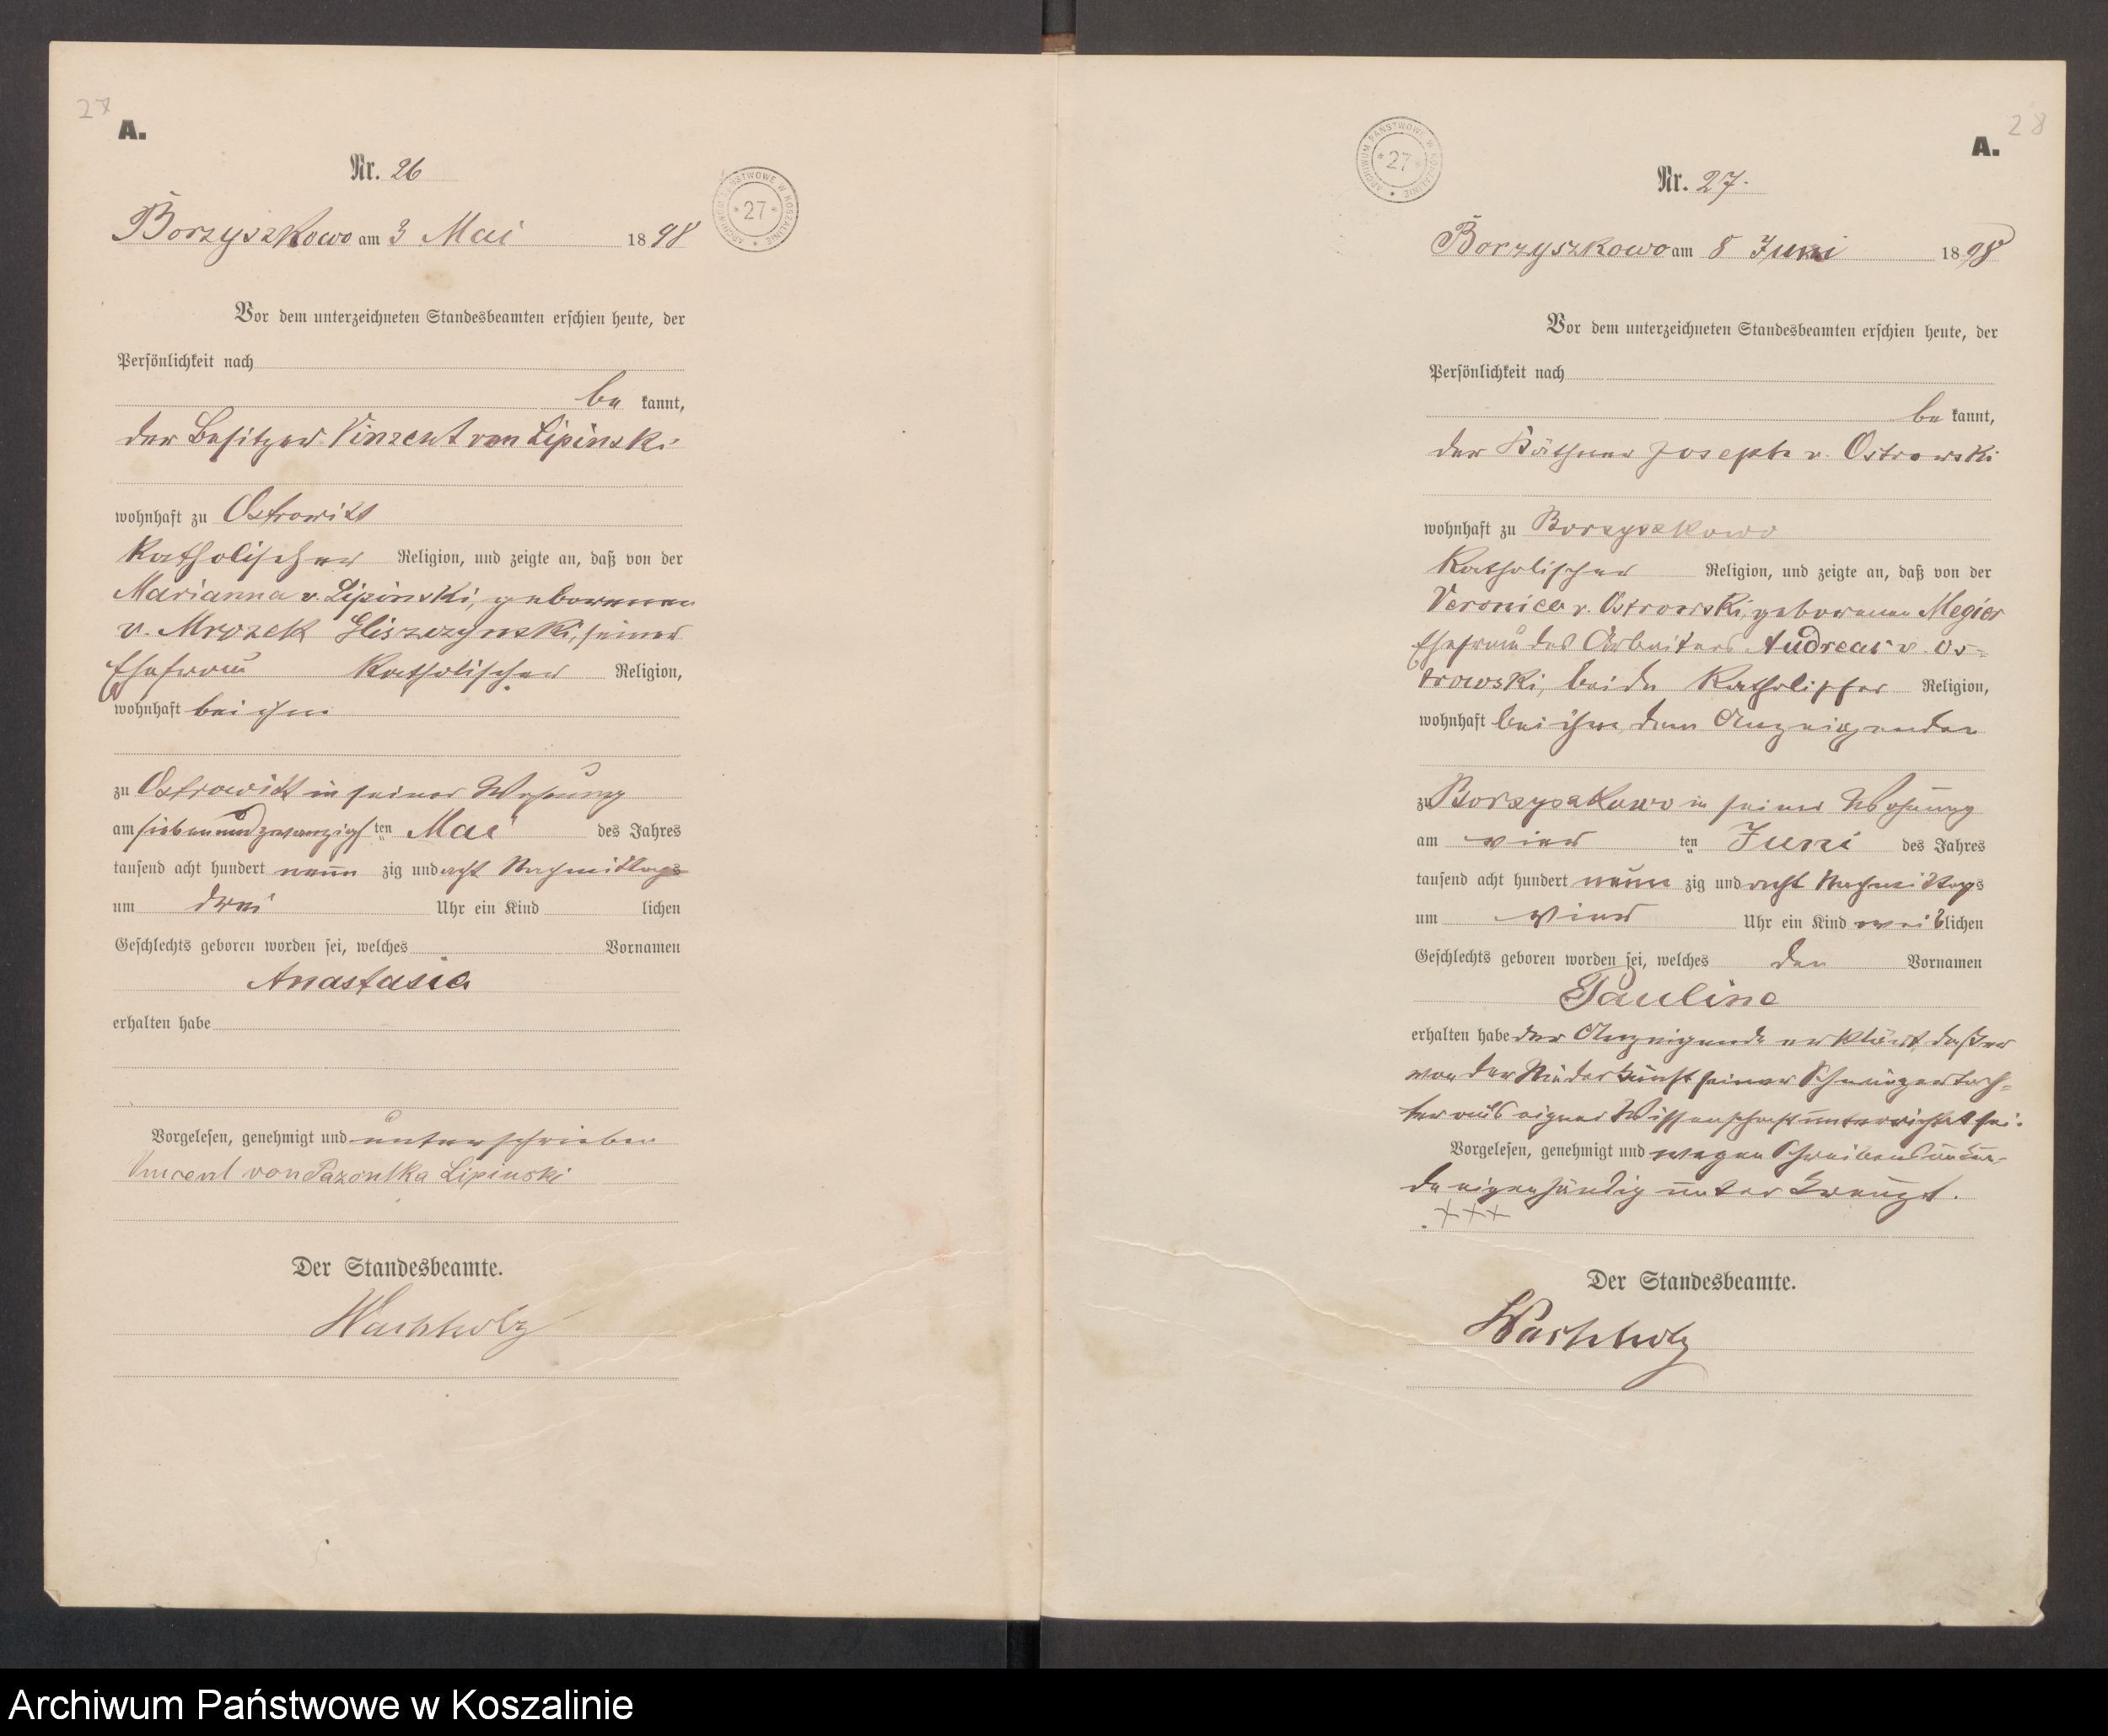 27
A.
Nr. 26
ARCHIWUM PAŃSTWOWE W KOSZALINIE
* 27 *
Borzyszkowo am 3 Mai 1898
Vor dem unterzeichneten Standesbeamten erschien heute, der
Persönlichkeit nach
be kannt,
der Besitzer Vinzent von Lipinski
wohnhaft zu Ostrowitt
katholischer Religion, und zeigte an, daß von der
Marianna v. Lipinski, geborenen
v. Mrozek Gliszczynski, seiner
Ehefrau katholischer Religion,
wohnhaft bei ihm
zu Ostrowitt in seiner Wohnung
am siebenundzwanzigsten ten Mai des Jahres
tausend acht hundert neun zig und acht Nachmittags
um drei Uhr ein Kind lichen
Geschlechts geboren worden sei, welches Vornamen
Anastasia
erhalten habe
Vorgelesen, genehmigt und unterschrieben
Vincent von Pazontka Lipinski
Der Standesbeamte.
Wachholz
28
A.
ARCHIWUM PAŃSTWOWE W KOSZALINIE
* 27 *
Nr. 27.
Borzyszkowo am 8 Juni 1898
Vor dem unterzeichneten Standesbeamten erschien heute, der
Persönlichkeit nach
be kannt,
der Käthner Joseph v. Ostrowski
wohnhaft zu Borzyszkowo
katholischer Religion, und zeigte an, daß von der
Veronica v. Ostrowski, geborenen Megier
Ehefrau des Arbeiters Andreas v. Os=
trowski, beide katholischer Religion,
wohnhaft bei ihm, dem Anzeigenden
zu Borzyszkowo in seiner Wohnung
am vier ten Juni des Jahres
tausend acht hundert neun zig und acht Nachmittags
um vier Uhr ein Kind weiblichen
Geschlechts geboren worden sei, welches den Vornamen
Pauline
erhalten habe der Anzeigende erklärt, daß er
von der Niederkunft seiner Schwiegertoch=
ter aus eigner Wissenschaft unterrichtet sei.
Vorgelesen, genehmigt und wegen Schreibensunkun=
de eigenhändig unterkreuzt.
+++
Der Standesbeamte.
Wachholz
Archiwum Państwowe w Koszalinie